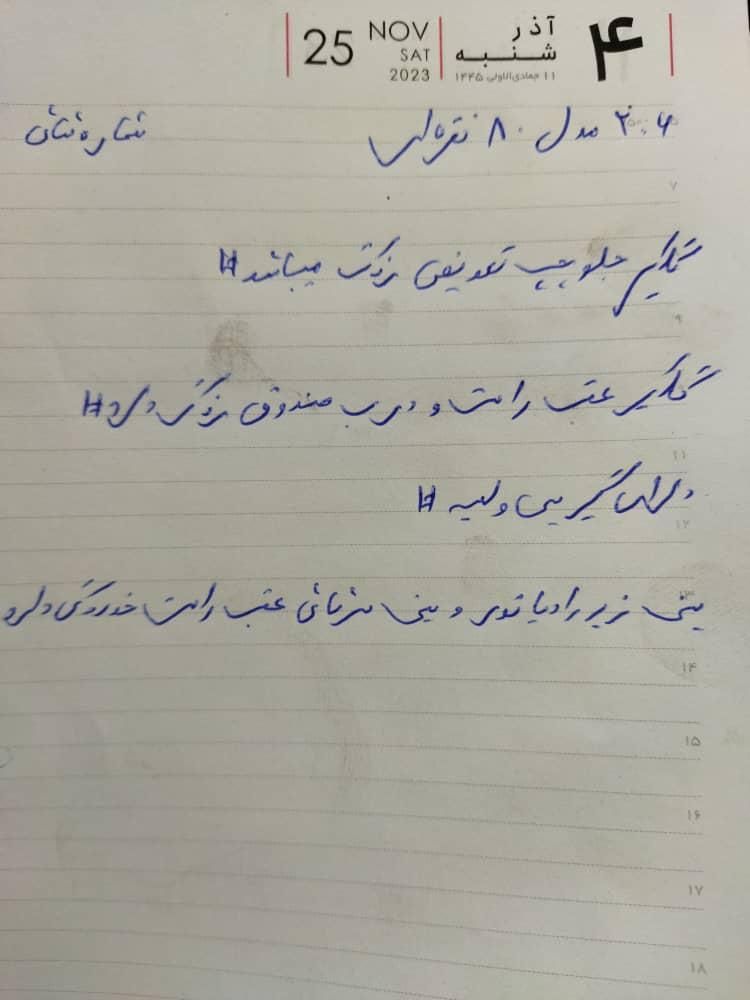 ۴ آذر شنبه 25 NOV SAT 2023
۱۱ جمادی‌الاولی ۱۴۴۵
۲۰۶ مدل ۸۰ نقره‌ای
۷
گلگیر جلو چپ تعویض رنگ میباشد #
۹
گلگیر عقب راست و درب صندوق رنگ دارد #
۱۱
#
۱۲
۱۳
سینی زیر رادیاتور و سینی عقب راست خوردگی دارد
۱۴
۱۵
۱۶
۱۷
۱۸